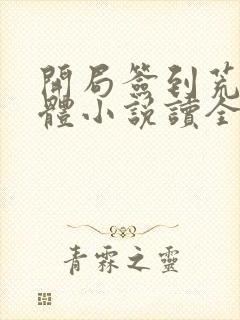 開局簽到荒
體小說讀全
青霖之靈